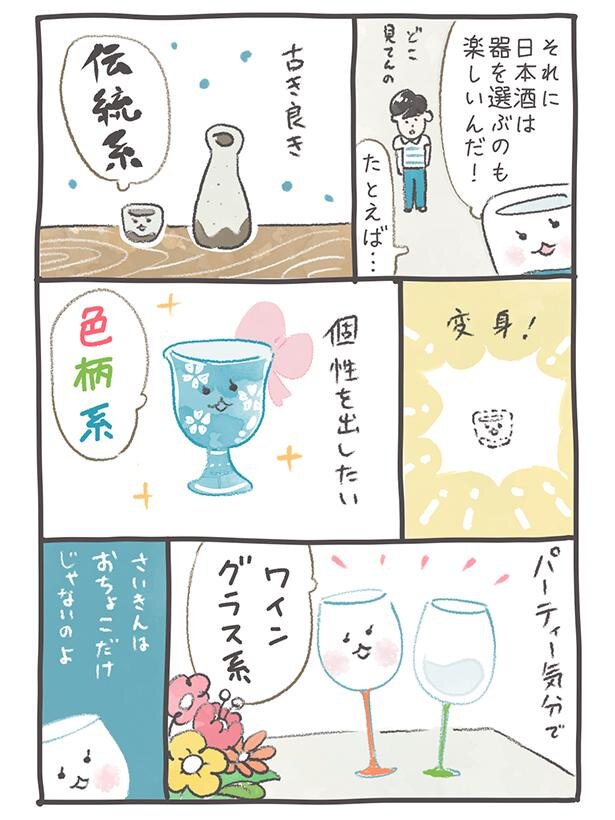 それに
日本酒は
器を選ぶのも
楽しいんだ！
どこ
見てんの
たとえば…
古き良き
伝統系
変身！
個性を出したい
色柄系
パーティー気分で
ワイン
グラス系
さいきんは
おちょこだけ
じゃないのよ